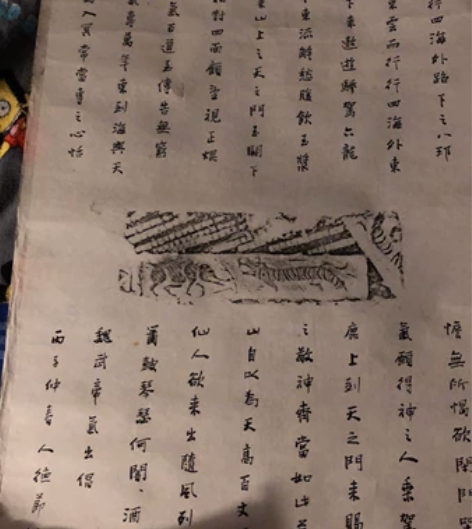 行四海外路下之八邦
雲而行行四海外東
下來遨遊驂駕六龍
東流解愁腹飲玉漿
山上之天之門玉闕下
相對四面顧望視正焜
氣百道至傳告無窮
氣壽萬年東到海與天
入冥常當專之心恬
憺無所惕欲閉門
氣願得神之人乘駕
鹿上到天之門來賜
之敬神齊當如此
山自以為天高百丈
仙人欲來出隨風列
簫鼓琴瑟何誾、酒
魏武帝氣出倡
丙子仲春人